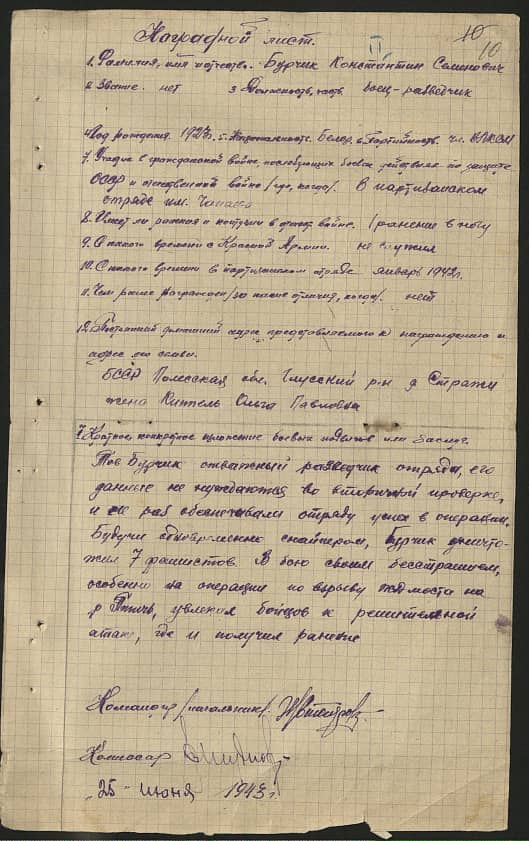 10
10
Наградной лист.
1. Фамилия, имя отчество. Бурчик Константин Семенович
2. Звание. нет 3 Должность, часть боец-разведчик
4 Год рождения. 1923г. 5. Национальность. Белор. 6 Партийность. чл. ВЛКСМ
7. Участие в гражданской войне, последующих боевых действиях по защите
СССР и отечественной войне /где, когда/. В партизанском
отряде им. Чапаева
8. Имеет ли ранения и контузии в отечест войне. 1 ранение в ногу
9. С какого времени в Красной Армии. не служил
10. С какого времени в партизанском отряде январь 1942г.
11. Чем ранее награжден /за какие отличия, когда/. нет
12. Постоянный домашний адрес представляемого к награждению и
адрес его семьи.
БССР Полесская обл. Глусский р-н д Стражи
жена Ольга Павловна
Краткое, конкретное изложение боевых подвигов или заслуг.
Тов Бурчик отважный разведчик отряда, его
данные не нуждаются во вторичной проверке,
и не раз обеспечивали отряду успех в операции.
Будучи одновременно снайпером, Бурчик уничто-
жил 7 фашистов. В бою своим бесстрашием,
особенно на операции по взрыву ж/д моста на
р Птичь, увлекал бойцов к решительной
атаке, где и получил ранение
Командир /начальник/
Комиссар
"25" июня 1943г